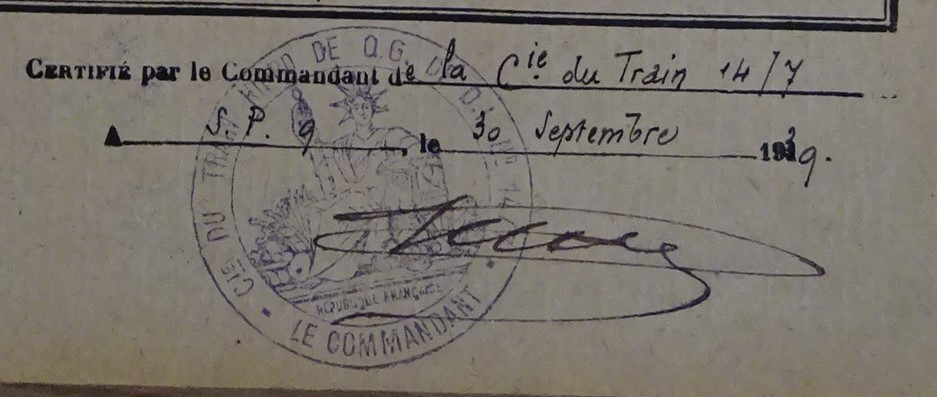 CERTIFIÉ par le Commandant de la Cie du Train 14/7
A S. P. 9, le 30 Septembre 1939.
CIE DU TRAIN HIPPO DE Q.G. D.I. Nº 14
RÉPUBLIQUE FRANÇAISE
LE COMMANDANT